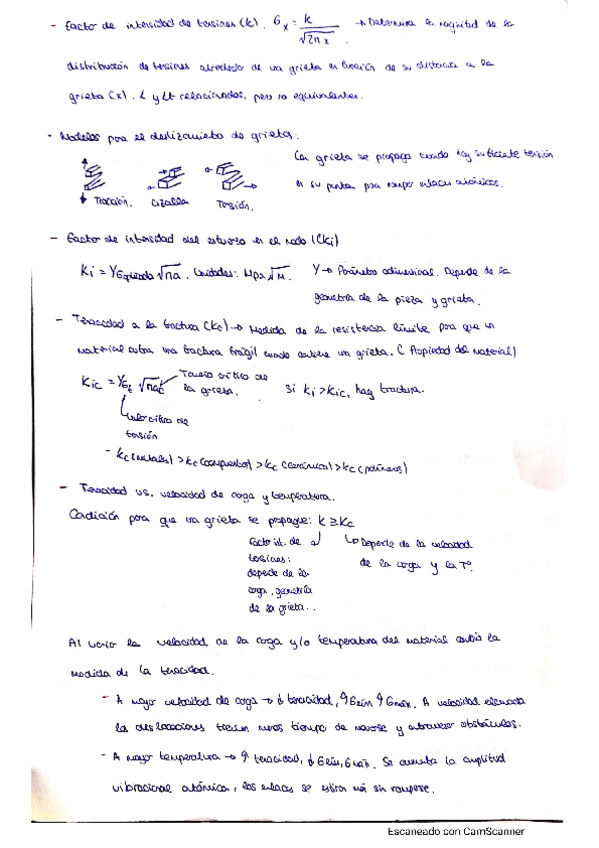 - Factor de intensidad de tensiones (K). σx = K / √2πx → Determina la magnitud de la
distribución de tensiones alrededor de una grieta en función de su distancia a la
grieta (x). K y Kt relacionados, pero no equivalentes.
- Modelos para el deslizamiento de grieta:
La grieta se propaga cuando hay suficiente tensión
en su punta para romper enlaces atómicos.
Tracción. Cizalla Torsión.
- Factor de intensidad del esfuerzo en el modo (Ki)
Ki = Yσaplicada √πa. Unidades: Mpa√m. Y → Parámetro adimensional. Depende de la
geometría de la pieza y grieta.
- Tenacidad a la fractura (Kc) → Medida de la resistencia límite para que un
material sufra una fractura frágil cuando contiene un grieta. (Propiedad del material)
Kic = Yσt √πac Tamaño crítico de
la grieta. Si Ki > Kic, hay fractura.
Valor crítico de
tensión
- Kc (metales) > Kc (compuestos) > Kc (cerámicos) > Kc (polímeros)
- Tenacidad vs. velocidad de carga y temperatura.
Condición para que una grieta se propague: K ≥ Kc
Factor int. de
tensiones:
depende de la
carga, geometría
de la grieta...
Depende de la velocidad
de la carga y la Tª.
Al variar la velocidad de la carga y/o temperatura del material cambia la
medida de la tenacidad.
- A mayor velocidad de carga → ↓ tenacidad, ↑σlím ↑σmáx. A velocidad elevada
las dislocaciones tienen menos tiempo de moverse y atravesar obstáculos.
- A mayor temperatura → ↑ tenacidad, ↓σlím, σmáx. Se aumenta la amplitud
vibracional atómica, los enlaces se estiran más sin romperse.
Escaneado con CamScanner